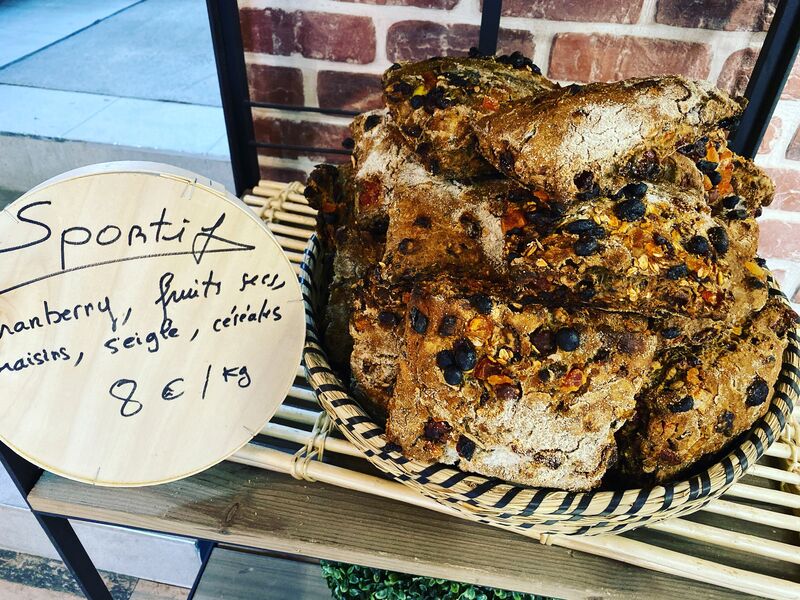 Sportif
cranberry, fruits secs,
raisins, seigle, céréales
8 € / kg